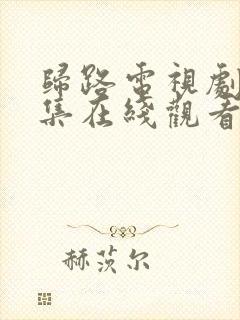 歸路電視劇
集在綫觀看
赫茨尔